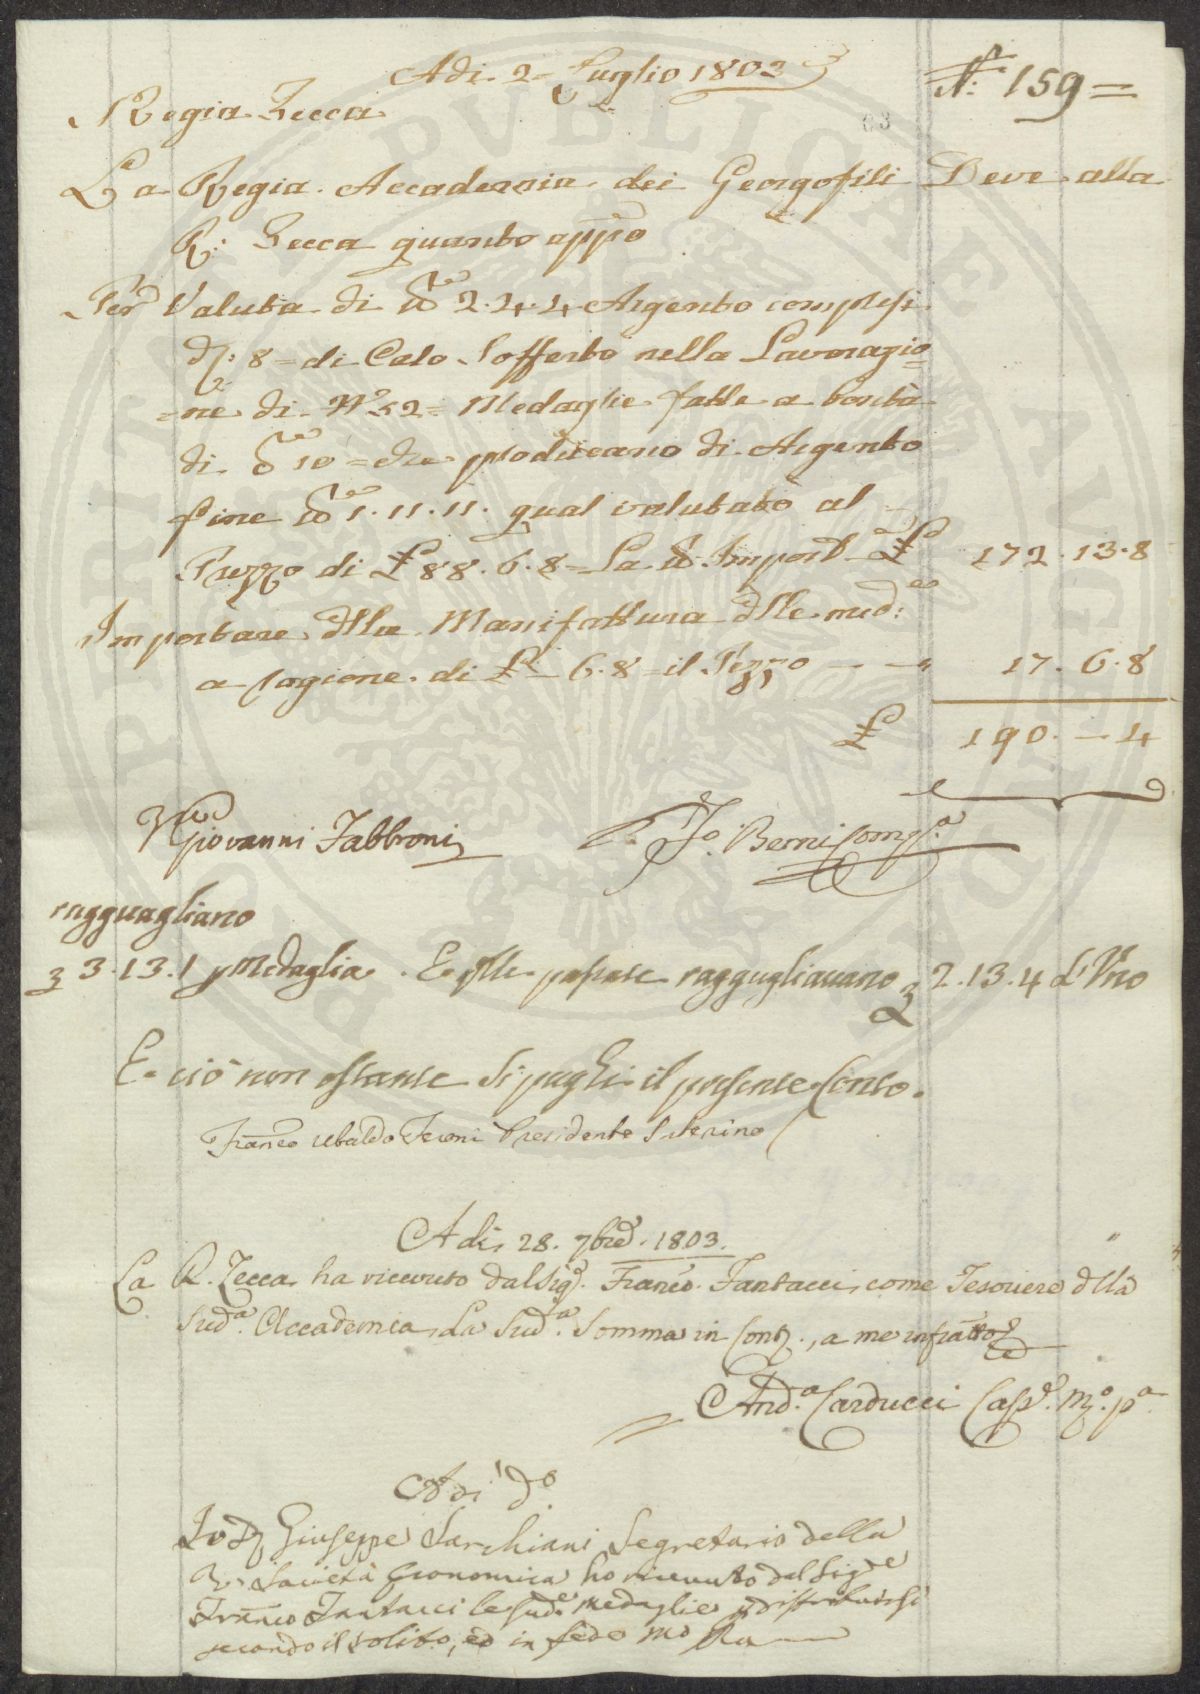 Adi 2 Luglio 1803
N.° 159 =
Regia Zecca
63
La Regia Accademia dei Georgofili Deve alla
R: Zecca quanto app͠o
Per Valuta di 2.4.4 Argento compresi
d: 8 = di Calo Sofferto nella Lavoragio
=ne di N° 52 = Medaglie fatte a bontà
di 10 = che producano di Argento
fine 1.11.11. qual valutato al
Prezzo di £ 88.6.8 = La Import £ 172.13.8
Importare dlla Manifattura dlle med:e
a ragione di £ – 6.8 = il Pezzo — — " 17.6.8
£ 190. – 4
Giovanni Fabbroni
Berni Comp.a
ragguagliano
3.13.1 p Medaglia. E plle passate raggugliavano 2.13.4 l'Uno
E ciò non ostante Si paghi il presente Conto.
Franco Ubaldo Feroni Presidente Interino
Adi 28. 7bre. 1803.
La R. Zecca ha ricevuto dal Sig.r Franco. Fantacci come Tesoriere dlla
Sud.a Accademia La Sud.a Somma in Cont., a me infratto
And.a Carducci Cass.e M.o p.a
Adi d.o
Io Giuseppe Sarchiani Segretario della
R. Società Economica ho ricevuto dal Sig.re
Franco Fantacci le sud.e medaglie p distribuirsi
secondo il solito, ed in fede